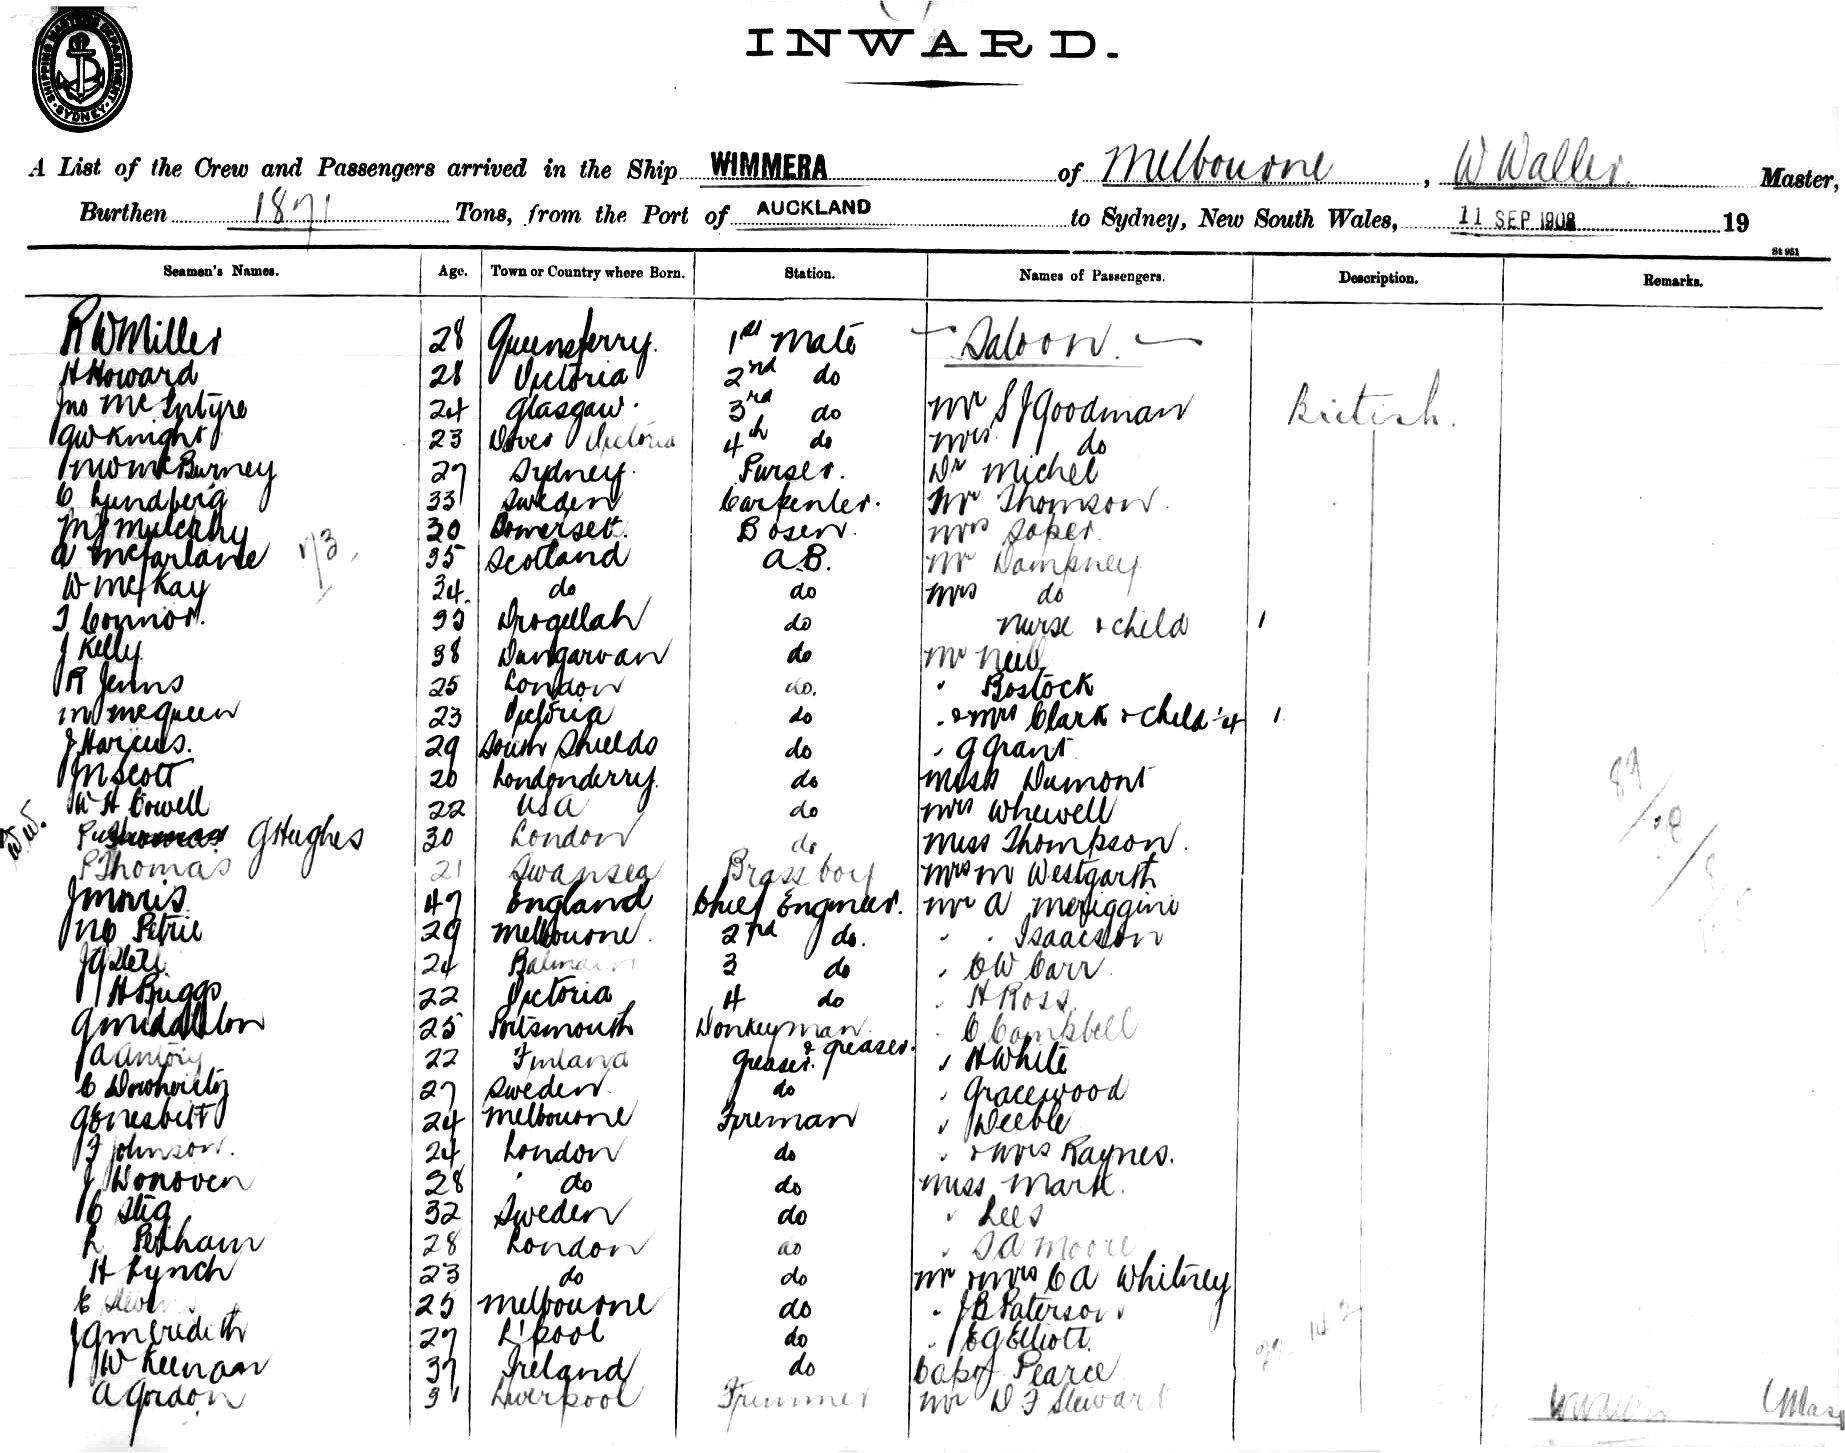 SHIPPING MASTERS DEPARTMENT SYDNEY
INWARD.
A List of the Crew and Passengers arrived in the Ship WIMMERA of Melbourne, W Waller Master,
Burthen 1871 Tons, from the Port of AUCKLAND to Sydney, New South Wales, 11 SEP 1908 19
St 951
Seamen's Names. Age. Town or Country where Born. Station. Names of Passengers. Description. Remarks.
R W Miller 28 Queensferry. 1st Mate Saloon.
H Howard 28 Victoria 2nd do
Jno McIntyre 24 Glasgow. 3rd do Mr S J Goodman British.
G W Knight 23 Dover Victoria 4th do Mrs do
McBurney 27 Sydney. Purser. Dr Michel
C Lundberg 33 Sweden Carpenter. Mr Thomson.
M J Mulcahy 30 Somerset. Bosen. Mrs Soper.
A McFarlane 35 Scotland A.B. Mr Dampney
W McKay 34 do do Mrs do
T Connor. 33 do Nurse & child 1
J Kelly 38 Dungarvan do Mr Neil
R Jenns 25 London do. " Bostock
M McQueen 23 Victoria do " & Mrs Clark & child 1
J Harcus. 29 South Shields do " G Grant
J N Scott 20 Londonderry. do Miss Dumont
W H Cowell 22 USA do Mrs Whewell
W.W. G Hughes 30 London do Miss Thompson.
P Thomas 21 Swansea Brassboy Mrs M Westgarth
J Morris 47 England Chief Engineer. Mr A
Petrie 29 Melbourne. 2nd do. " " Isaacson
24 Balmain 3 do " O W Carr
H Briggs 22 Victoria 4 do " H Ross.
G Middleton 25 Portsmouth Donkeyman & greaser. " C Campbell
A Antony 22 Finland Greaser. " H White
C 27 Sweden. do " Gracewood
G E Nesbitt 24 Melbourne Fireman " Deeble
F Johnson. 24 London do " & Mrs Raynes.
J Donoven 28 " do do Miss Mark.
C Stig 32 Sweden do " Lees
L Pelham 28 London do " S A Moore
H Lynch 23 do do Mr & Mrs C A Whitney
E Stevens 25 Melbourne do " J B Paterson
J G Meredith 27 L'pool do " E G Elliott.
W Keenan 37 Ireland do Capt Pearce
A Gordon 31 Liverpool Trimmer Mr D F Stewart
W Waller Mas